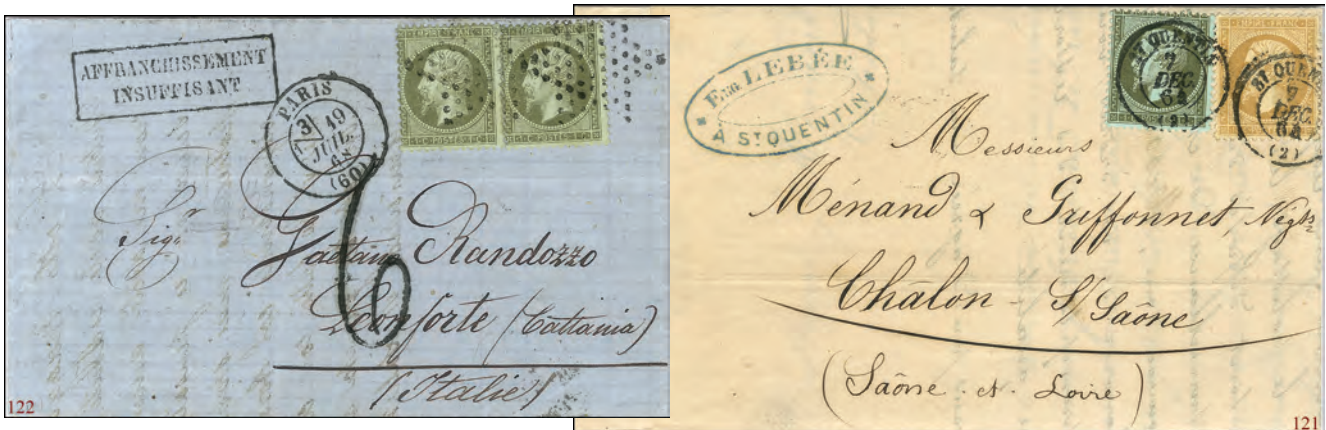 AFFRANCHISSEMENT
INSUFFISANT
PARIS
19
JUIL
68
(60)
6
Sigr Gaetano Randozzo
Leonforte (Cattania)
(Italie)
122
EMPIRE FRANC
EMPIRE FRANC
Eug LEBÉE
A St QUENTIN
ST QUENTIN
7
DEC
64
(2)
ST QUENTIN
7
DEC
64
(2)
Messieurs
Ménand & Griffonnet, Négts
Châlon - S/Saône
(Saône et Loire)
121